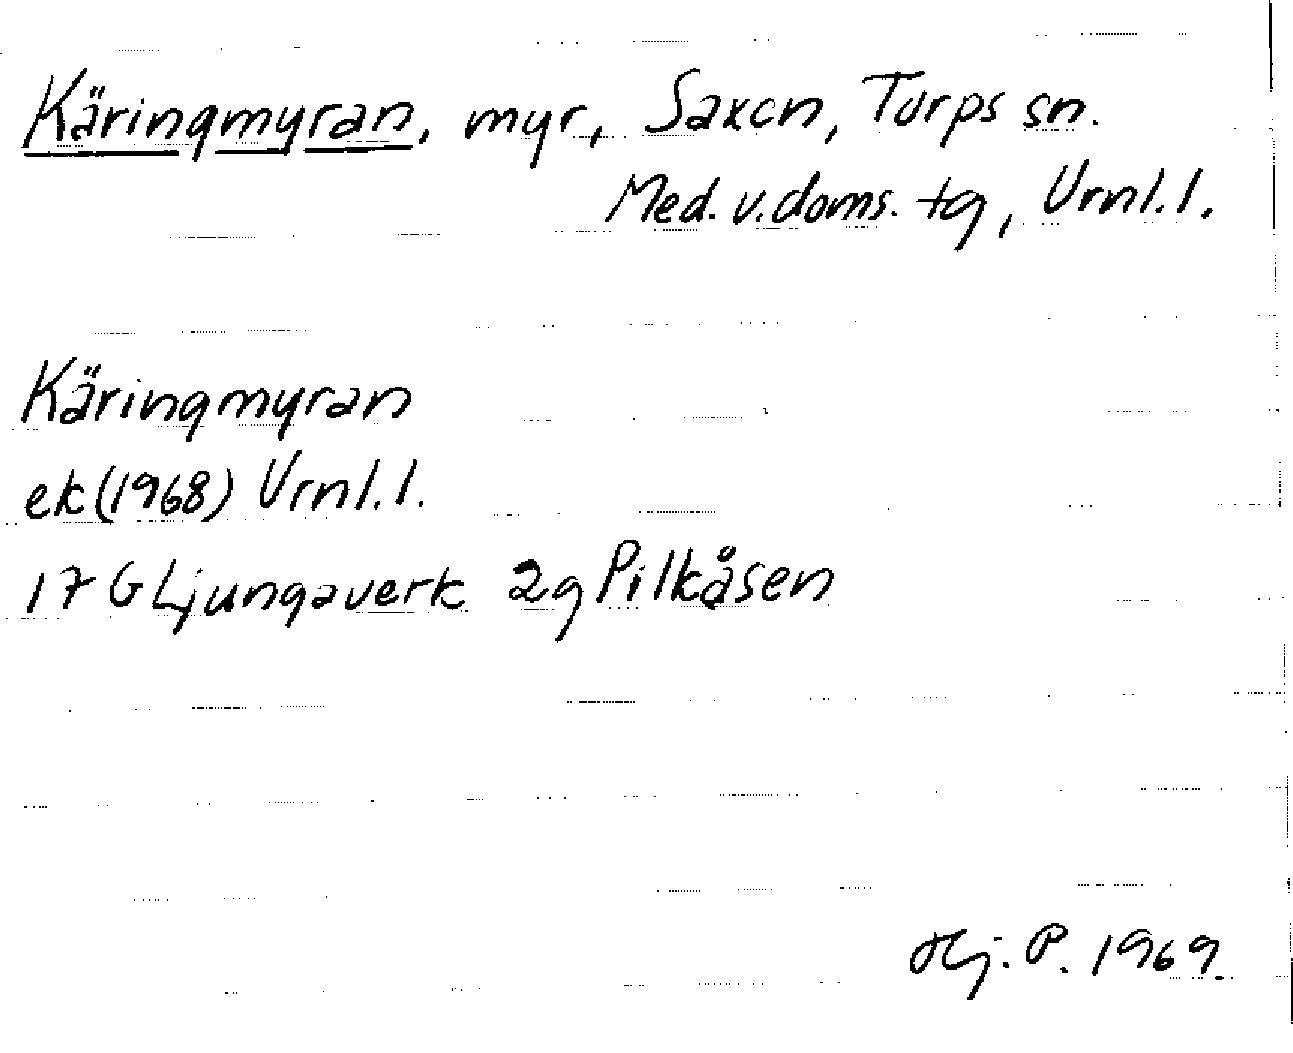 Käringmyran, myr, Saxen, Torps sn.
Med. v. doms. tg, Vrnl. l.
Käringmyran
ek (1968) Vrnl. l.
17 G Ljungaverk 2g Pilkåsen
Hj. P. 1969.